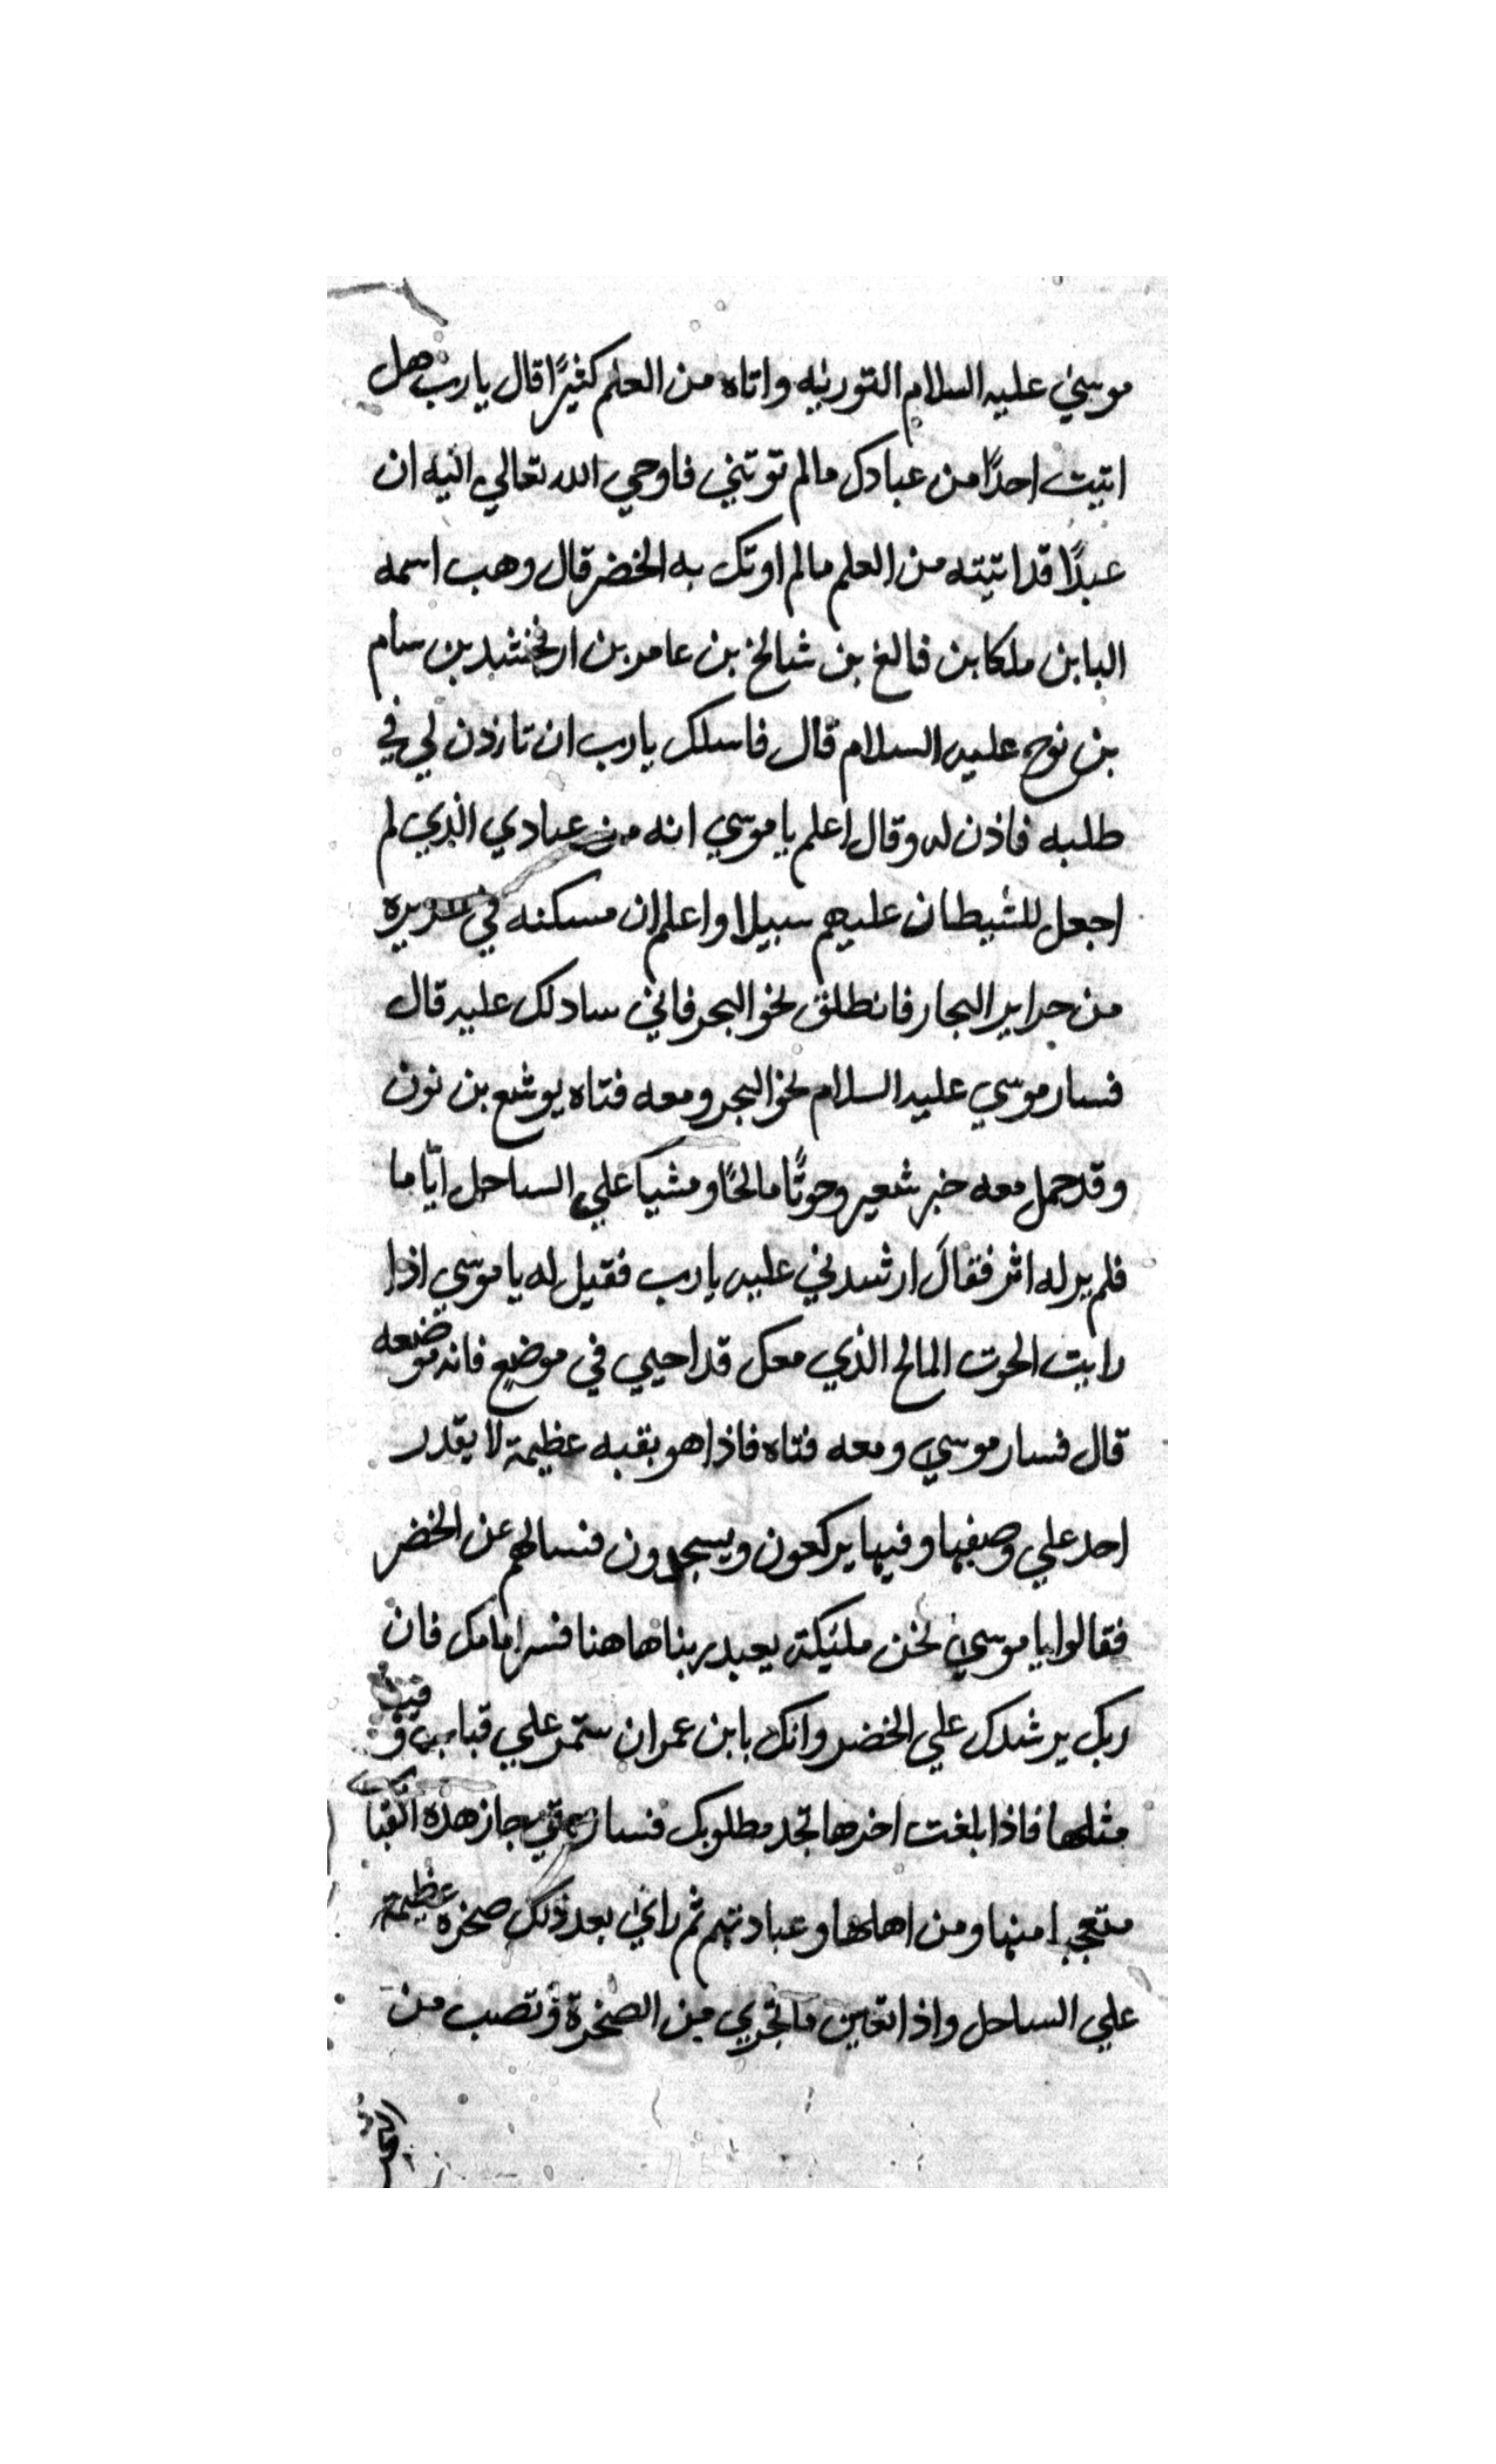 موسي عليه السلام التوريه واتاه من العلم كثيرًا قال يارب هل
اتيت احدًا من عبادك مالم توتني فاوحي الله تعالي اليه ان
عبدًا قد اتيته من العلم مالم اوتك به الخضر قال وهب اسمه
اليا بن ملكا بن فالغ بن شالخ بن عامر بن ارفخشد بن سام
بن نوح عليه السلام قال فاسلك يارب ان تازذن لي في
طلبه فاذن له وقال اعلم يا موسي انه من عبادي الذي لم
اجعل للشيطان عليهم سبيلا واعلم ان مسكنه في جزيره
من جزاير البحار فانطلق نحو البحر فاني سادلك عليه قال
فسار موسي عليه السلام نحو البحر ومعه فتاه يوشع بن نون
وقد حمل معه خبز شعير وحوتًا مالحًا ومشيا علي الساحل ايّاما
فلم ير له اثر فقال ارشدني عليه يارب فقيل له يا موسي اذا
رايت الحوت المالح الذي معك قد احيي في موضع فانه موضعه
قال فسار موسي ومعه فتاه فاذا هو بقبه عظيمة لا يقدر
احد علي وصفها وفيها يركعون ويسجدون فسالهم عن الخضر
فقالوا يا موسي نحن مليكة يعبد ربنا هاهنا فسر امامك فان
ربك يرشدك علي الخضر وانك يا بن عمران ستمر علي قباب
مثلها فاذا بلغت اخرها تجد مطلوبك فسار حتي جاز هذه القبا
متعجبا منها ومن اهلها وعبادتهم ثم راي بعد ذلك صخره عظيمة
علي الساحل واذا تعين ما تجري من الصخرة وتصب من